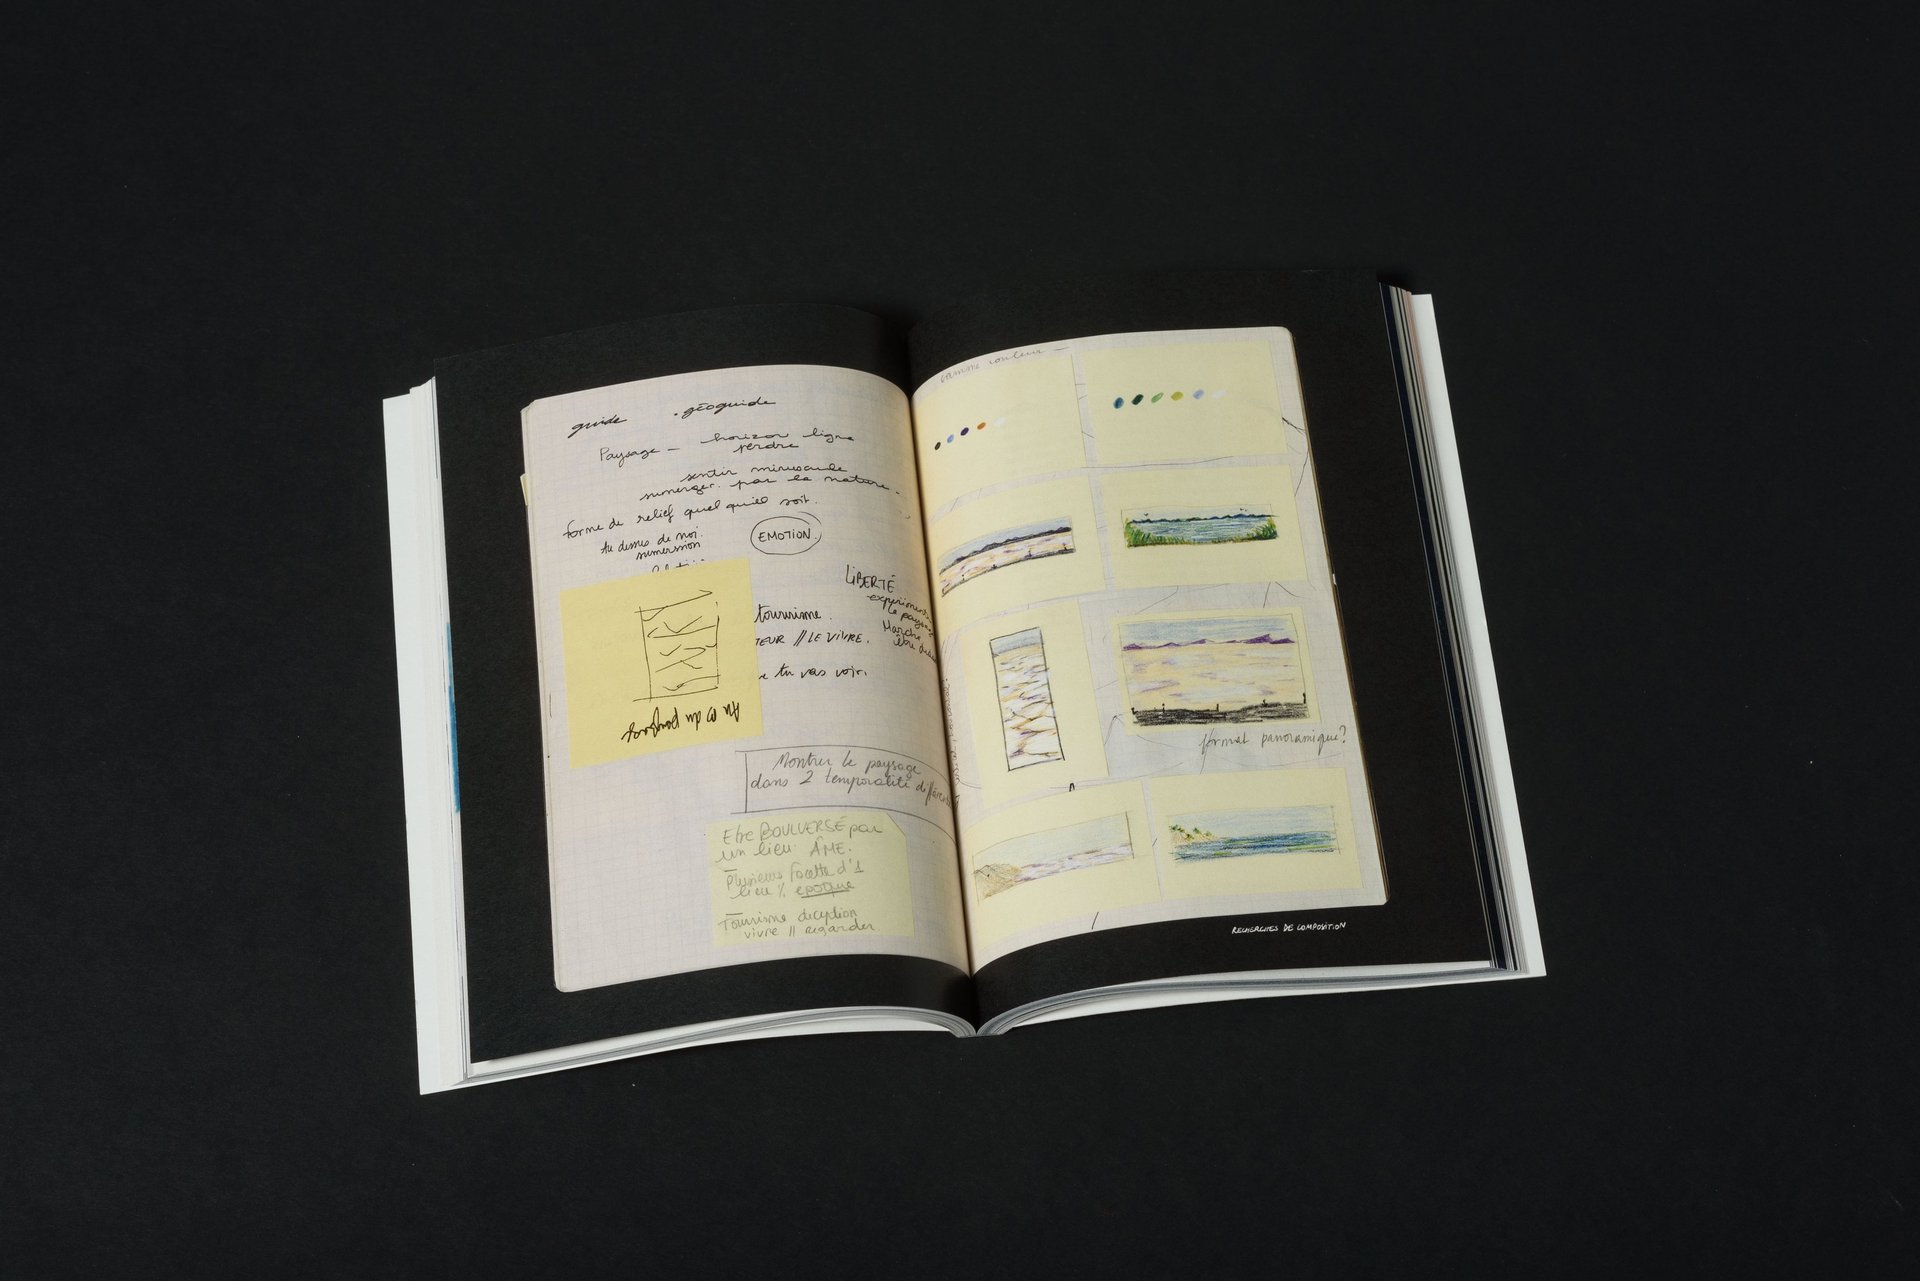 guide · géoguide
Paysage — horizon ligne
perdre
sentir minuscule
sumerger par la nature.
forme de relief quel qu'il soit.
Au dessus de moi.
sumersion
EMOTION.
LIBERTÉ
le paysage
Marche
tourisme.
TEUR // LE VIVRE.
tu vas voir.
Au du paysage
Montrer le paysage
dans 2 temporalité
Etre BOULVERSÉ par
un lieu. ÂME.
Plusieurs facette d'1
lieu % époque
Tourisme déception
vivre // regarder
Gamme couleur —
format panoramique?
RECHERCHES DE COMPOSITION